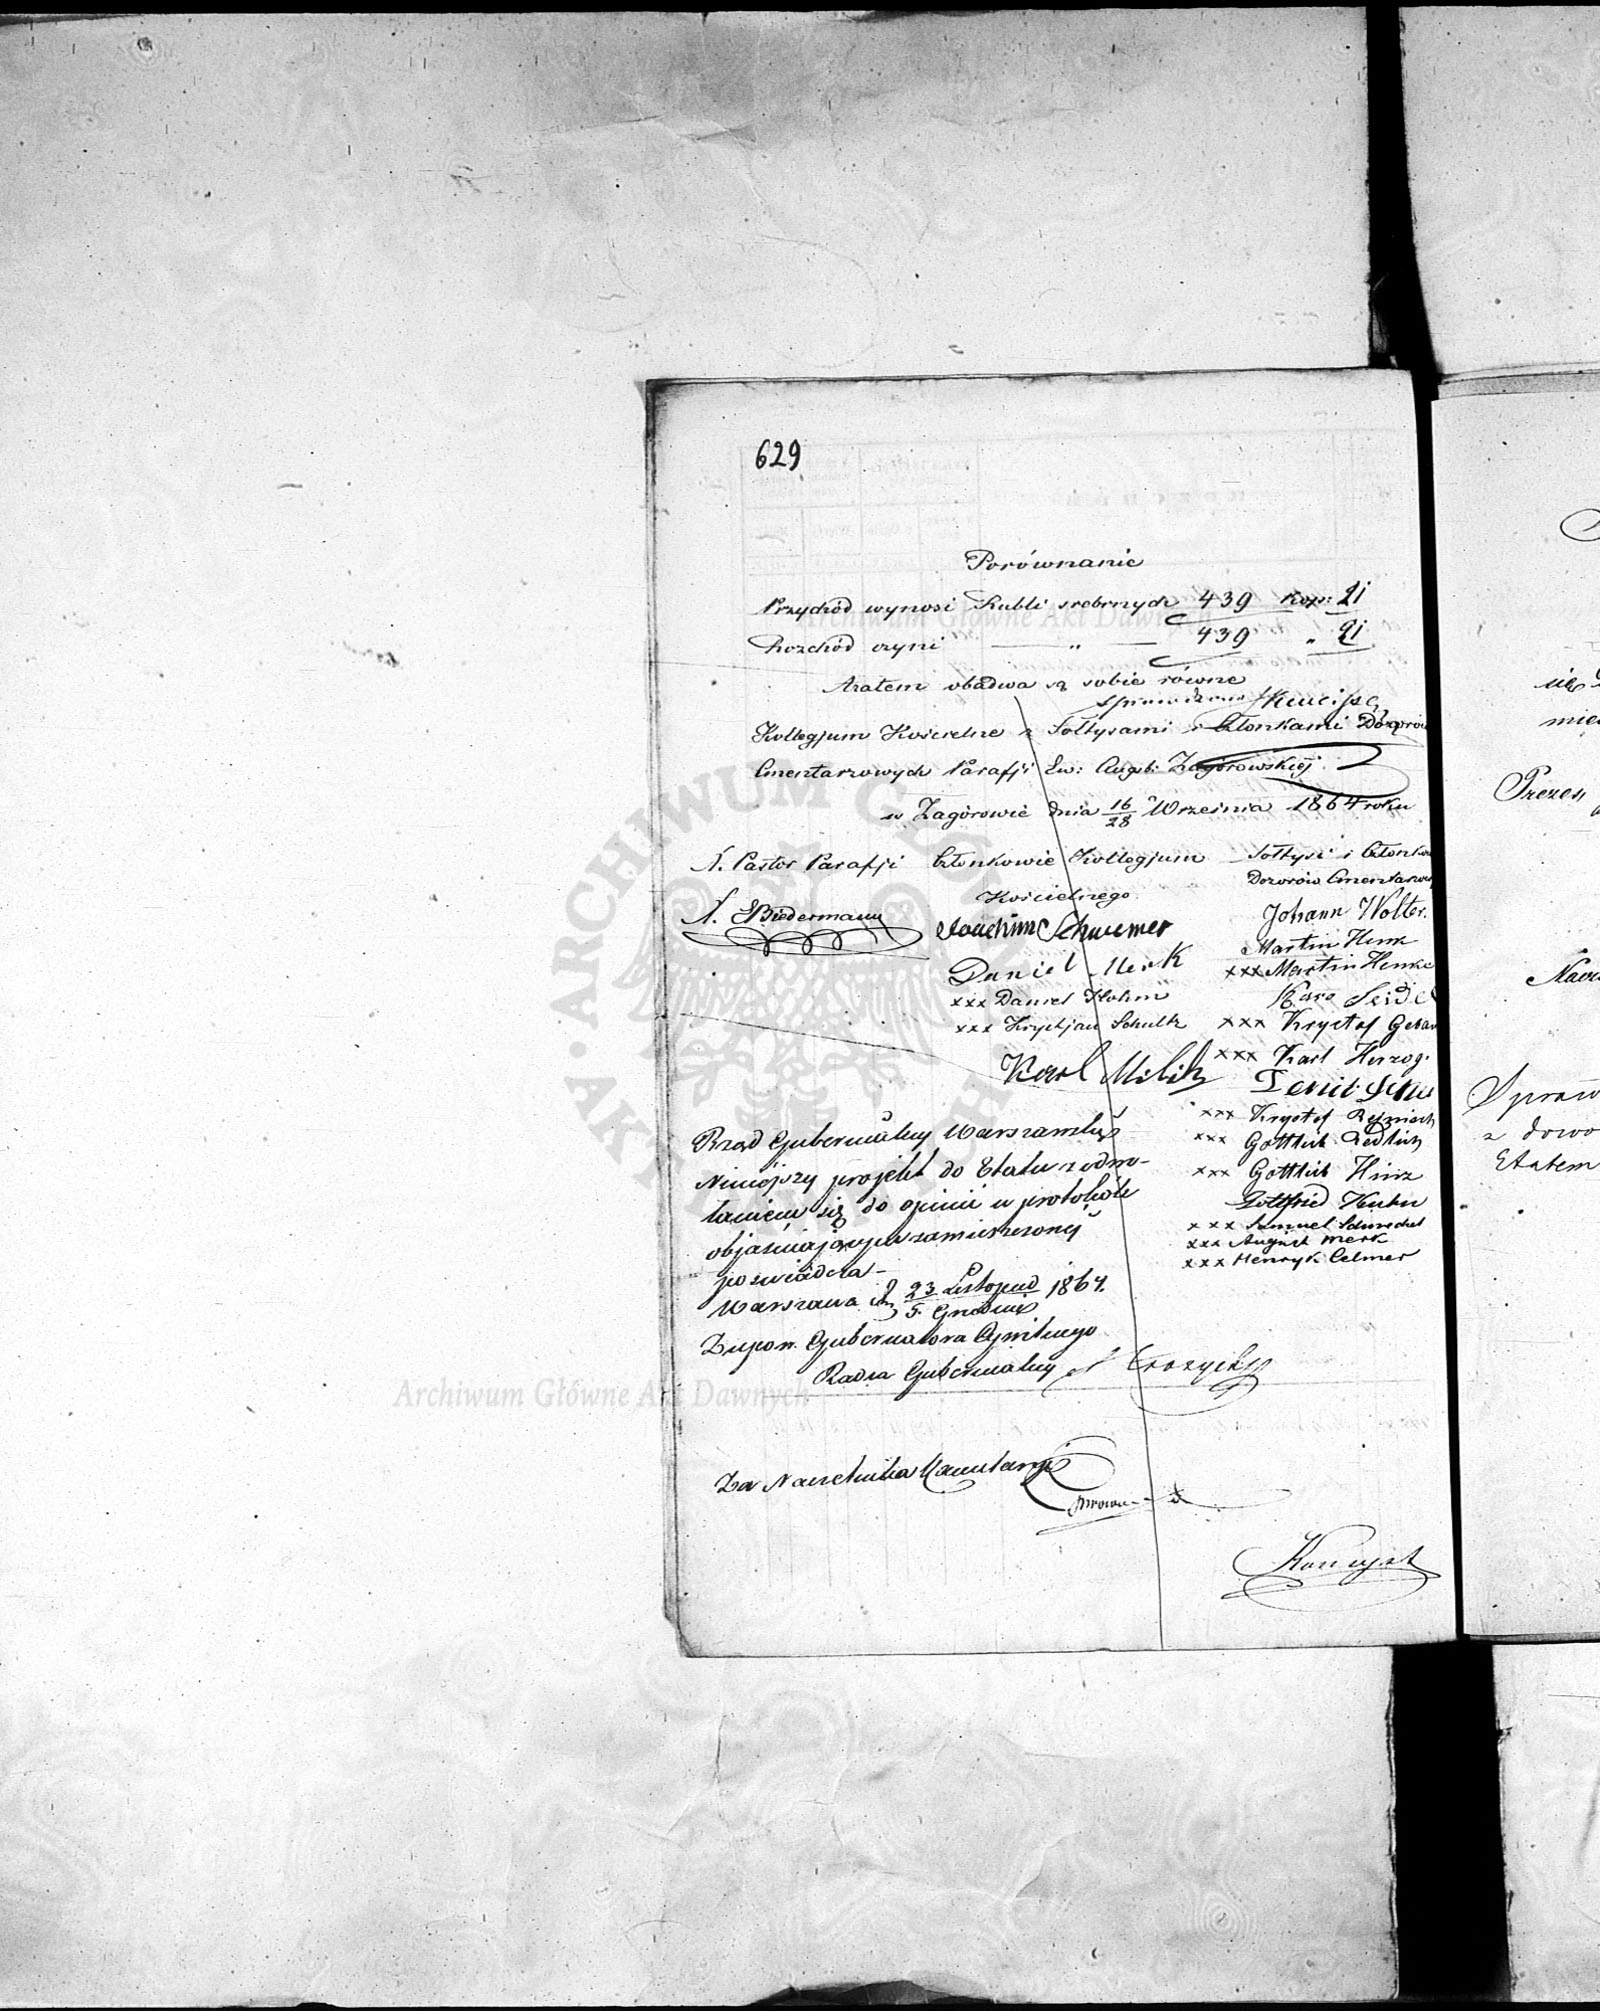 629
Porównanie
Przychód wynosi Rubli srebrnych 439 Kop: 21
Rozchód czyni — " — 439 " 21
Zatem obadwa są sobie równe
Kollegjum Kościelne z Sołtysami i Członkami Dozorów
Cmentarzowych Parafji Ew: Augsb: Zagórowskiéj
w Zagórowie dnia 16/28 Września 1864 roku
N. Pastor Parafji
N. EBiedermann
Członkowie Kollegjum
Kościelnego
Joachim Schwemer
Daniel Merk
xxx Daniel Hohm
xxx Krystjan Schultz
Karl Milik
Sołtysi i Członkow
Dozorów Cmentarzowy
Johann Wolter.
Martin Henk
xxx Martin Henke
Karo Seidel
xxx Krysztof
xxx Karl Herzog.
xxx Krysztof
xxx Gottlieb Redlich
xxx Gottlieb Hinz
Gottfried Kuhn
xxx Samuel
xxx August Merk
xxx Henryk Celmer
Rząd Gubernialny Warszawski
Niniejszy projekt do Etatu z odwo-
łaniem się do opinii w protokóle
objaśniającym zamieszczonéj
poświadcza –
Warszawa d. 23 Listopad/5 Grudnia 1864.
Z upow. Gubernatora Cywilnego
Radca Gubernialny
Za Naczelnika Kancelaryi
Archiwum Główne Akt Dawnych
Prezes